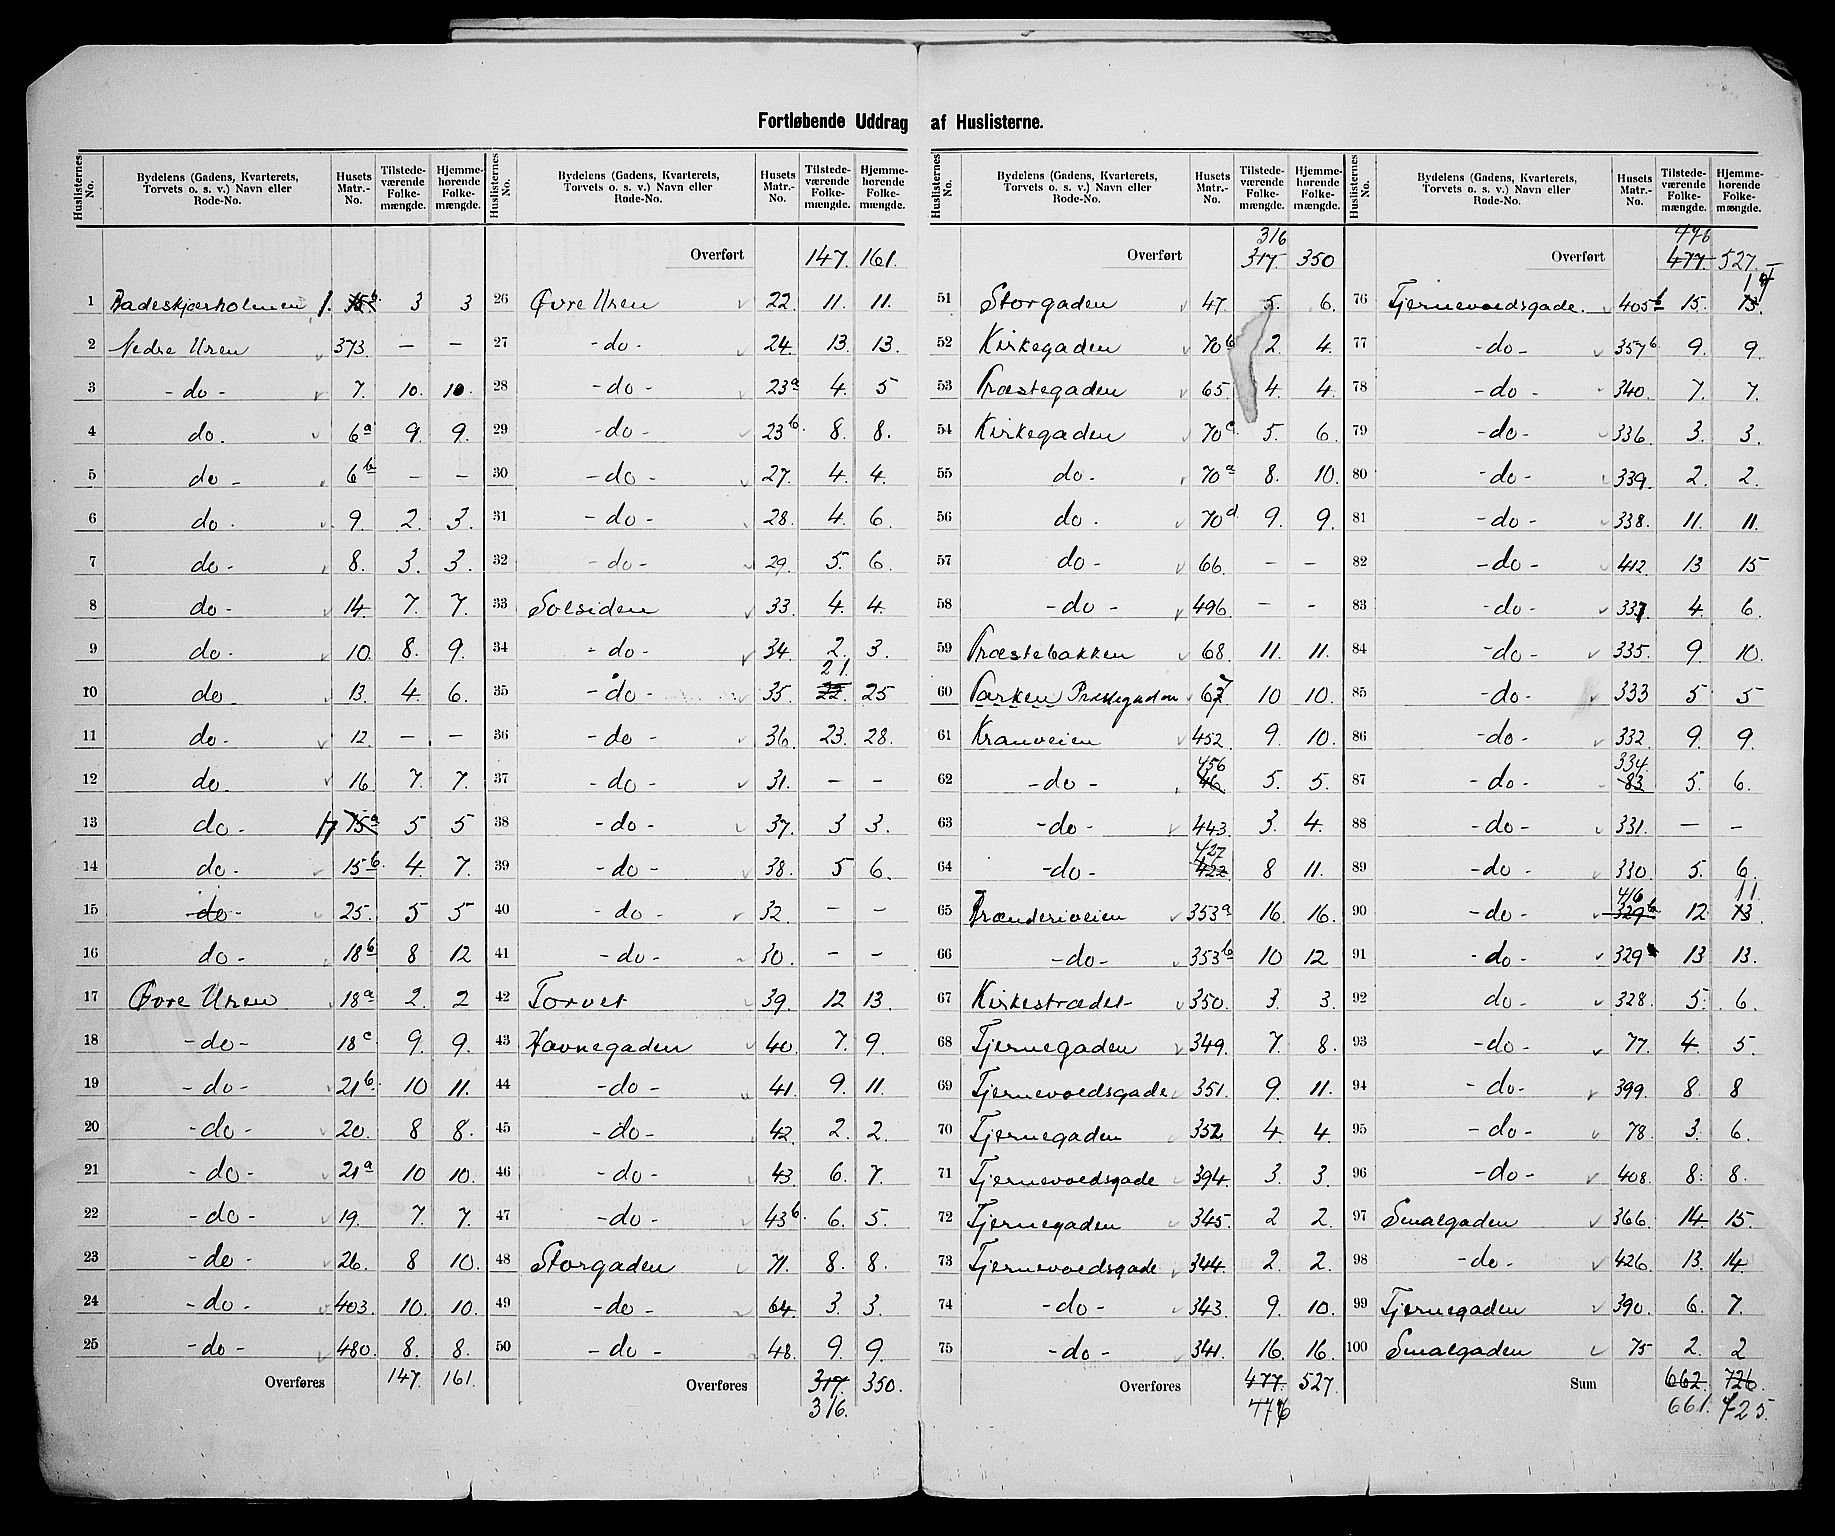 Fortløbende Uddrag af Huslisterne.
Huslisternes No. | Bydelens (Gadens, Kvarterets, Torvets o. s. v.) Navn eller Rode-No. | Husets Matr.-No. | Tilstedeværende Folkemængde. | Hjemmehørende Folkemængde.
1 Badeskjærholmen 1. 15b 3 3
2 Nedre Uren 373. — —
3 - do - 7. 10. 10.
4 do. 6a 9. 9.
5 do - 6b — —
6 do. 9. 2. 3.
7 do - 8. 3. 3.
8 do - 14. 7. 7.
9 do. 10. 8. 9.
10 do 13. 4. 6.
11 do - 12. — —
12 do. 16 7. 7.
13 do - 17 15a 5 5
14 do. 15b. 4. 7.
15 do - 25. 5 5
16 do - 18b 8 12
17 Øvre Uren 18a 2. 2
18 - do - 18c 9. 9.
19 - do - 21b. 10 11.
20 - do - 20. 8 8.
21 - do - 21a 10 10.
22 - do - 19. 7. 7.
23 - do - 26. 8 10.
24 - do - 403. 10. 10.
25 - do - 480. 8. 8.
Overføres 147. 161.
Huslisternes No. | Bydelens (Gadens, Kvarterets, Torvets o. s. v.) Navn eller Rode-No. | Husets Matr.-No. | Tilstedeværende Folkemængde. | Hjemmehørende Folkemængde.
Overført 147. 161.
26 Øvre Uren 22. 11. 11.
27 - do - 24. 13. 13.
28 - do - 23a 4. 5
29 - do - 23b. 8. 8.
30 - do - 27. 4. 4.
31 - do - 28. 4. 6.
32 - do - 29. 5. 6.
33 Solsiden 33. 4. 4.
34 - do - 34. 2. 3.
21.
35 - do - 35. 22. 25
36 - do - 36. 23. 28.
37 - do - 31. — —
38 - do - 37. 3 3.
39 - do - 38. 5 6.
40 - do - 32. — —
41 - do - 30. — —
42 Torvet 39. 12 13.
43 Havnegaden 40. 7. 9.
44 - do - 41. 9. 11.
45 - do - 42. 2. 2.
46 - do - 43. 6. 7.
47 - do - 43b. 6. 5.
48 Storgaden 71. 8. 8.
49 - do - 64. 3. 3.
50 - do - 48. 9. 9.
Overføres 317. 350.
316.
Huslisternes No. | Bydelens (Gadens, Kvarterets, Torvets o. s. v.) Navn eller Rode-No. | Husets Matr.-No. | Tilstedeværende Folkemængde. | Hjemmehørende Folkemængde.
316
Overført 317. 350
51 Storgaden 47. 5. 6.
52 Kirkegaden 70b 2. 4.
53 Præstegaden 65. 4. 4.
54 Kirkegaden 70c. 5. 6.
55 do. 70a 8. 10.
56 do. 70d 9. 9.
57 do - 66. — —
58 - do - 496. — —
59 Præstebakken 68. 11. 11.
60 Parken Præstegaden 67 10 10.
61 Kranveien 452. 9. 10.
456
62 - do - 46 5. 5.
63 - do - 443. 3. 4.
427
64 - do - 422 8 11.
65 Brænderiveien 353a 16. 16.
66 - do - 353b 10 12
67 Kirkestrædet 350. 3. 3.
68 Tjernegaden 349. 7. 8.
69 Tjernevoldsgade 351. 9. 11.
70 Tjernegaden 352 4. 4.
71 Tjernevoldsgade 394. 3. 3.
72 Tjernegaden 345. 2 2.
73 Tjernevoldsgade 344. 2. 2.
74 - do - 343. 9. 10.
75 - do - 341. 16. 16.
Overføres 477. 527.
476
Huslisternes No. | Bydelens (Gadens, Kvarterets, Torvets o. s. v.) Navn eller Rode-No. | Husets Matr.-No. | Tilstedeværende Folkemængde. | Hjemmehørende Folkemængde.
476
Overført 477. 527.
14
76 Tjernevoldsgade. 405b 15. 13.
77 - do - 357b 9. 9.
78 - do - 340. 7. 7.
79 - do - 336. 3. 3.
80 - do - 339. 2. 2.
81 - do - 338. 11. 11.
82 - do - 412. 13 15
83 - do - 337. 4. 6.
84 - do - 335. 9. 10.
85 - do - 333 5 5
86 - do - 332. 9. 9.
334.
87 - do - 83 5. 6.
88 - do - 331. — —
89 - do - 330. 5. 6.
416 11
90 - do - 329b 12. 13
91 - do - 329 13 13.
92 do - 328. 5. 6.
93 - do - 77. 4. 5.
94 - do - 399. 8. 8
95 - do - 78. 3. 6.
96 - do - 408. 8. 8.
97 Smalgaden 366. 14. 15.
98 - do - 426. 13. 14.
99 Tjernegaden 390. 6. 7.
100 Smalgaden 75 2. 2
Sum 662. 726.
661. 725.